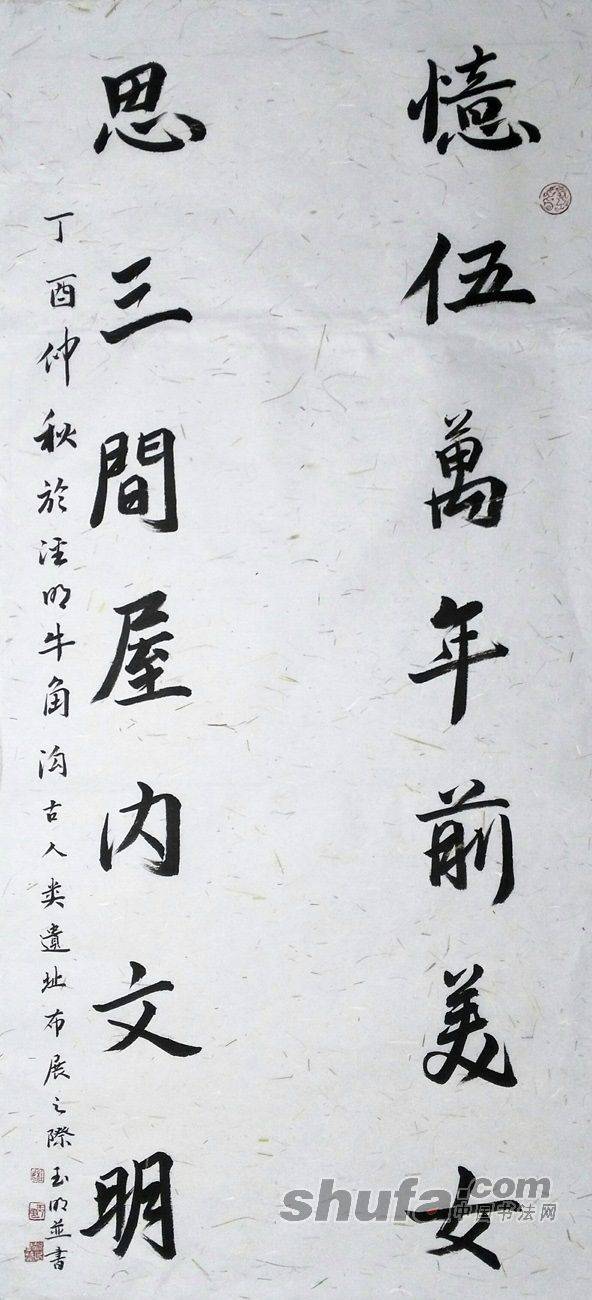 憶伍萬年前美女
思三間屋内文明
丁酉仲秋於涇明牛角沟古人类遺址布展之際
玉明並書
shufa.com
中国书法网